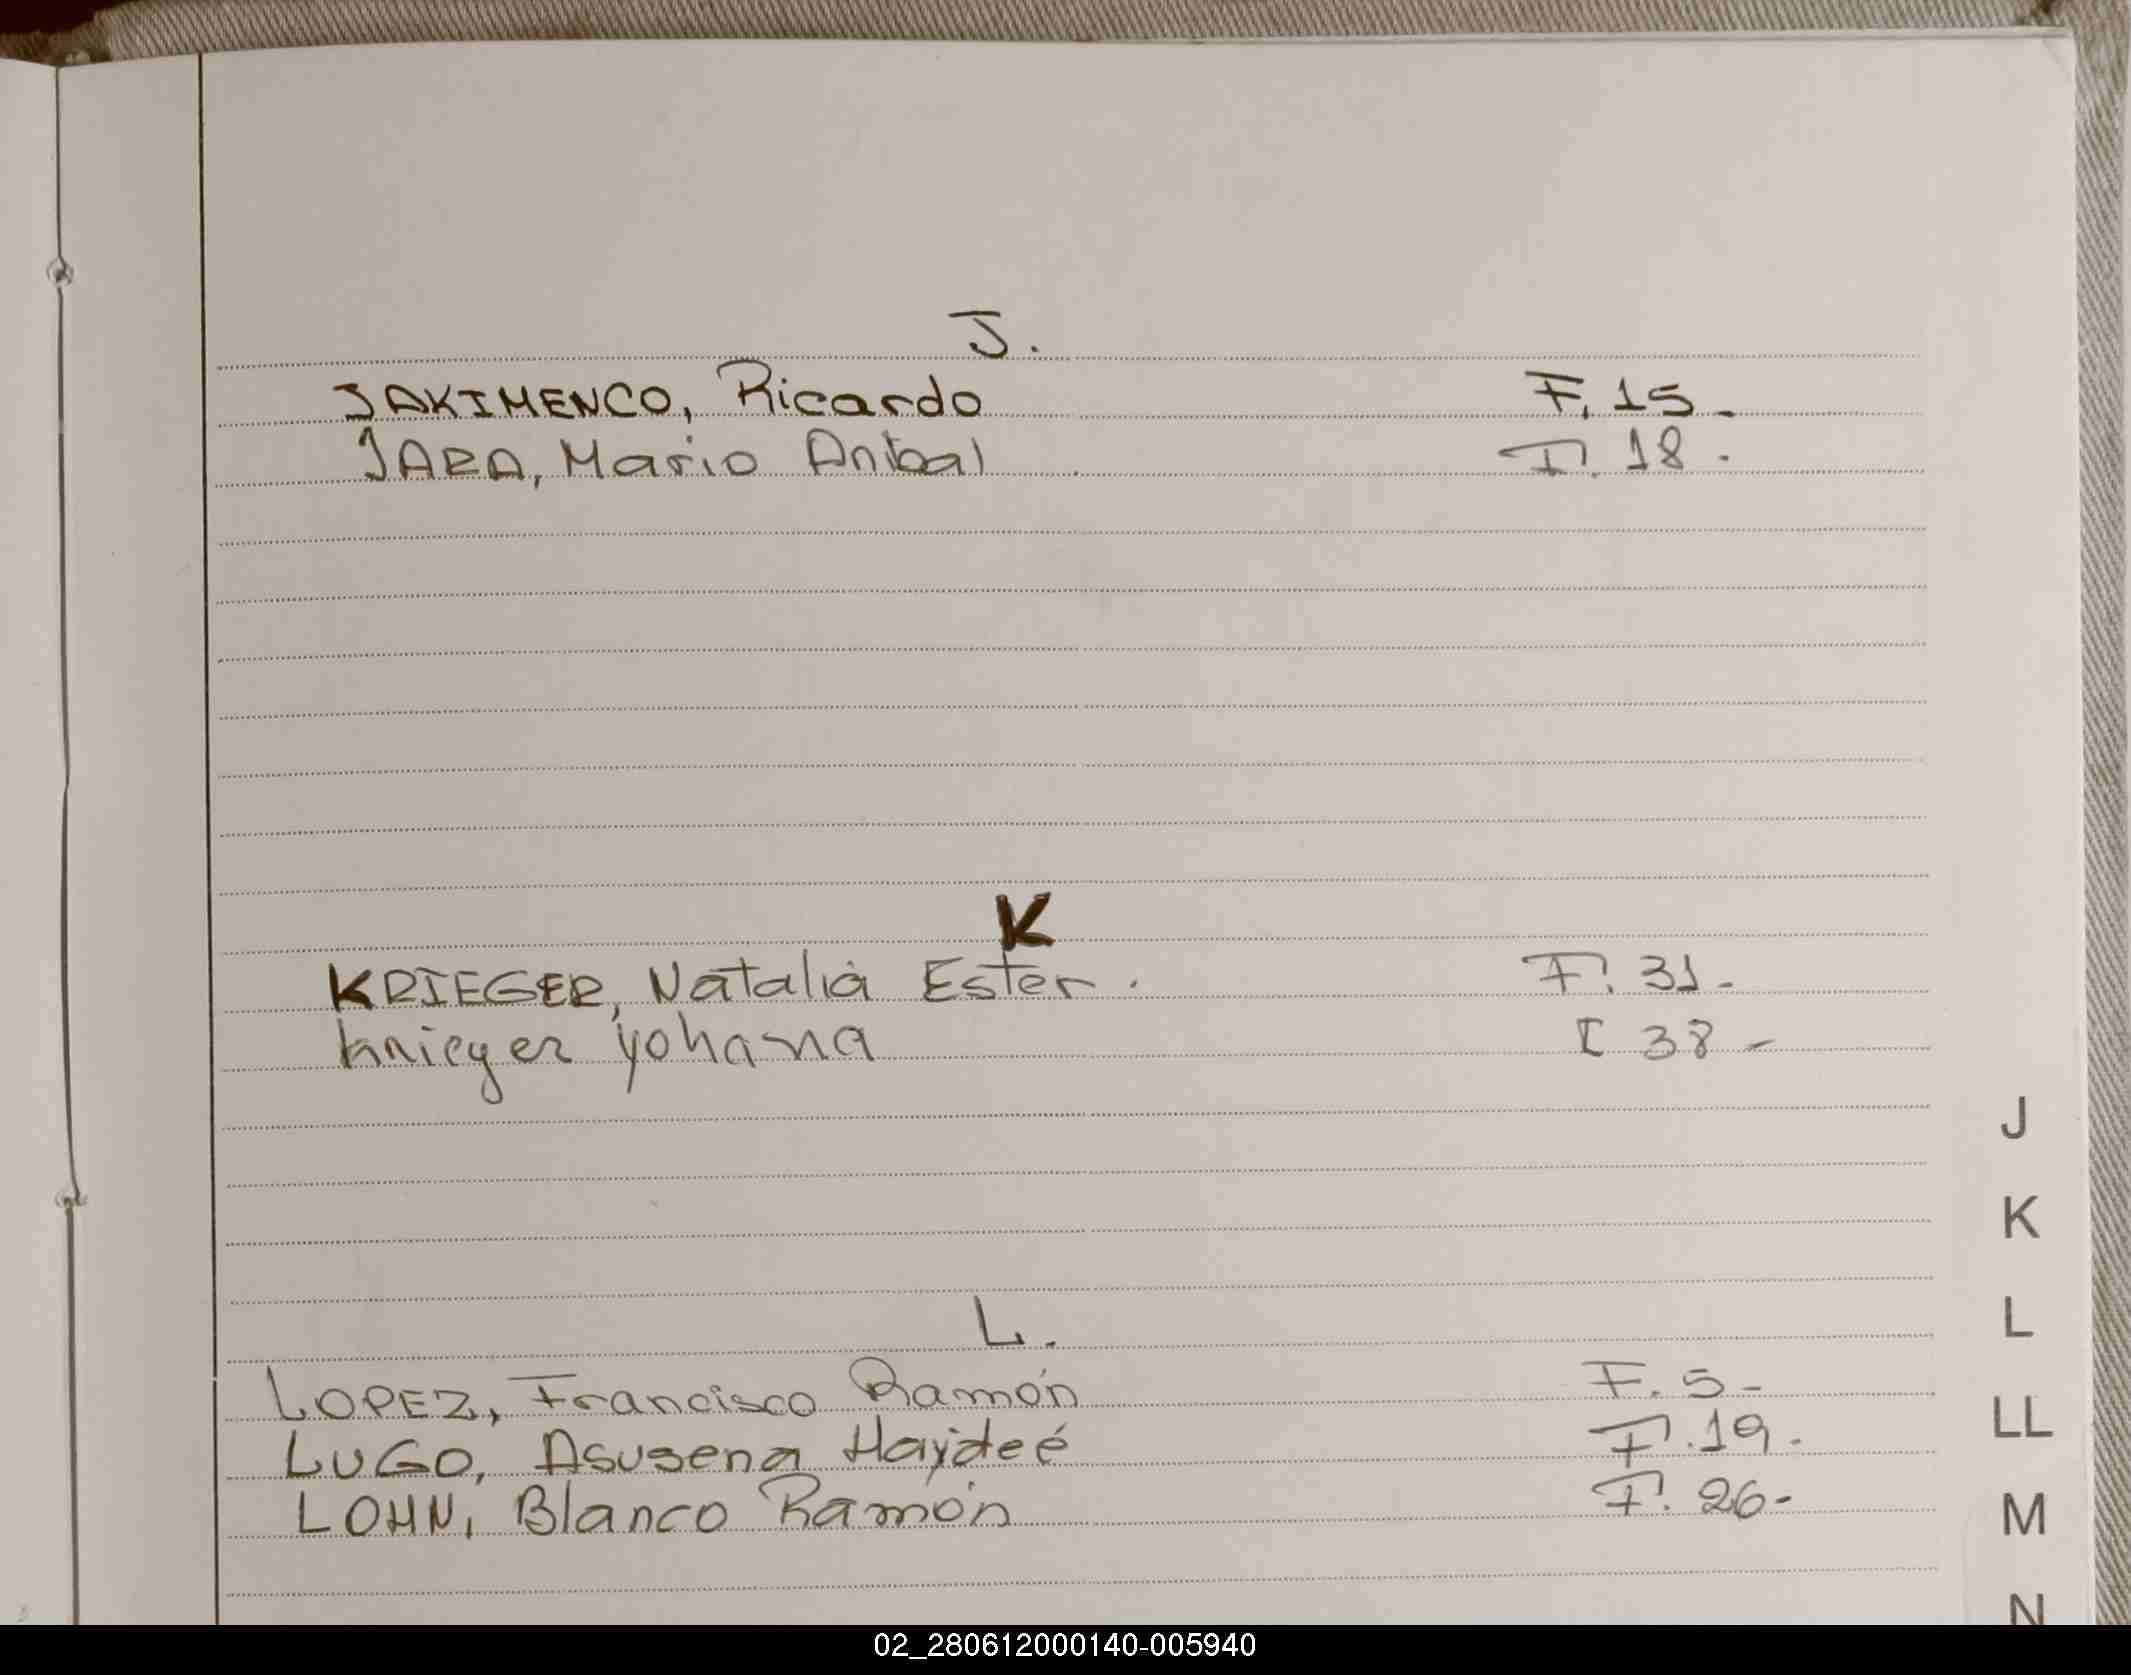 J.
JAKIMENCO, Ricardo F. 15-
JARA, Mario Anibal F. 18.
K
KRIEGER, Natalia Ester. F. 31-
krieger yohana F 38-
L.
LOPEZ, Francisco Ramón F. 5-
LUGO, Asusena Haydeé F. 19.
LOHN, Blanco Ramón F. 26-
J
K
L
LL
M
N
02_280612000140-005940